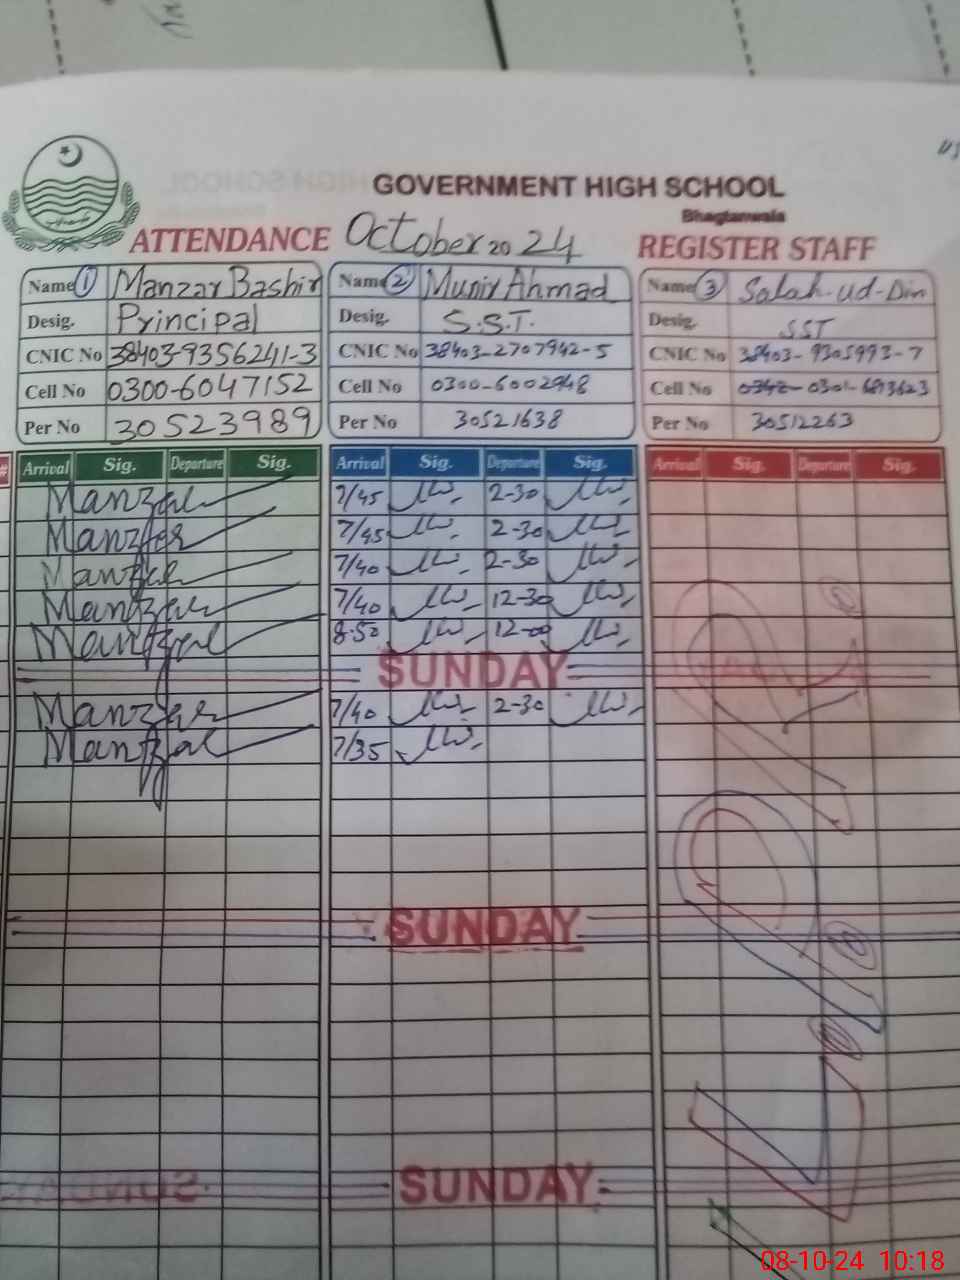 GOVERNMENT HIGH SCHOOL
Bhagtanwala
ATTENDANCE October 2024 REGISTER STAFF
Name 1 Manzar Bashir Name 2 Munir Ahmad Name 3 Salah-ud-Din
Desig. Principal Desig. S.S.T. Desig. SST
CNIC No 38403-9356241-3 CNIC No 38403-2707942-5 CNIC No 38403-9305993-7
Cell No 0300-6047152 Cell No 0300-6002948 Cell No 0342- 0301-6813623
Per No 30523989 Per No 30521638 Per No 30512263
# Arrival Sig. Departure Sig. Arrival Sig. Departure Sig. Arrival Sig. Departure Sig.
Manzar 7/45 2-30
Manzar 7/45 2-30
Manzar 7/40 2-30
Manzar 7/40 12-30
Manzar 8-50 12-00
SUNDAY
Manzar 7/40 2-30
Manzar 7/35
SUNDAY
SUNDAY
08-10-24 10:18